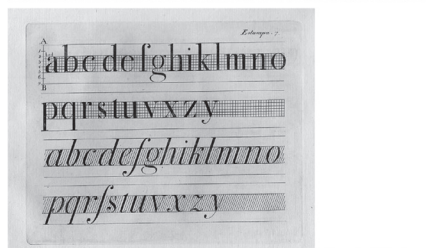 Estampa. 7
A
abcdefghiklmno
B
pqrstuvxzy
abcdefghiklmno
pqrſstuvxzy